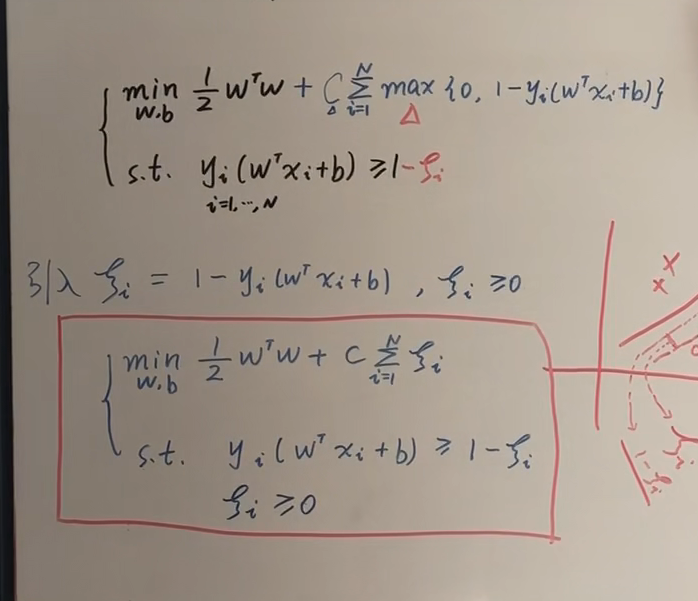 min 1/2 wᵀw + C ∑ᵢ₌₁ᴺ max {0, 1-yᵢ(wᵀxᵢ+b)}
w.b
Δ Δ
s.t. yᵢ(wᵀxᵢ+b) ≥1-ξᵢ
i=1,…,N
引入 ξᵢ = 1-yᵢ(wᵀxᵢ+b), ξᵢ ≥0
min 1/2 wᵀw + C ∑ᵢ₌₁ᴺ ξᵢ
w.b
s.t. yᵢ(wᵀxᵢ+b) ≥ 1-ξᵢ
ξᵢ ≥0
x
x
ξᵢ
1-ξᵢ